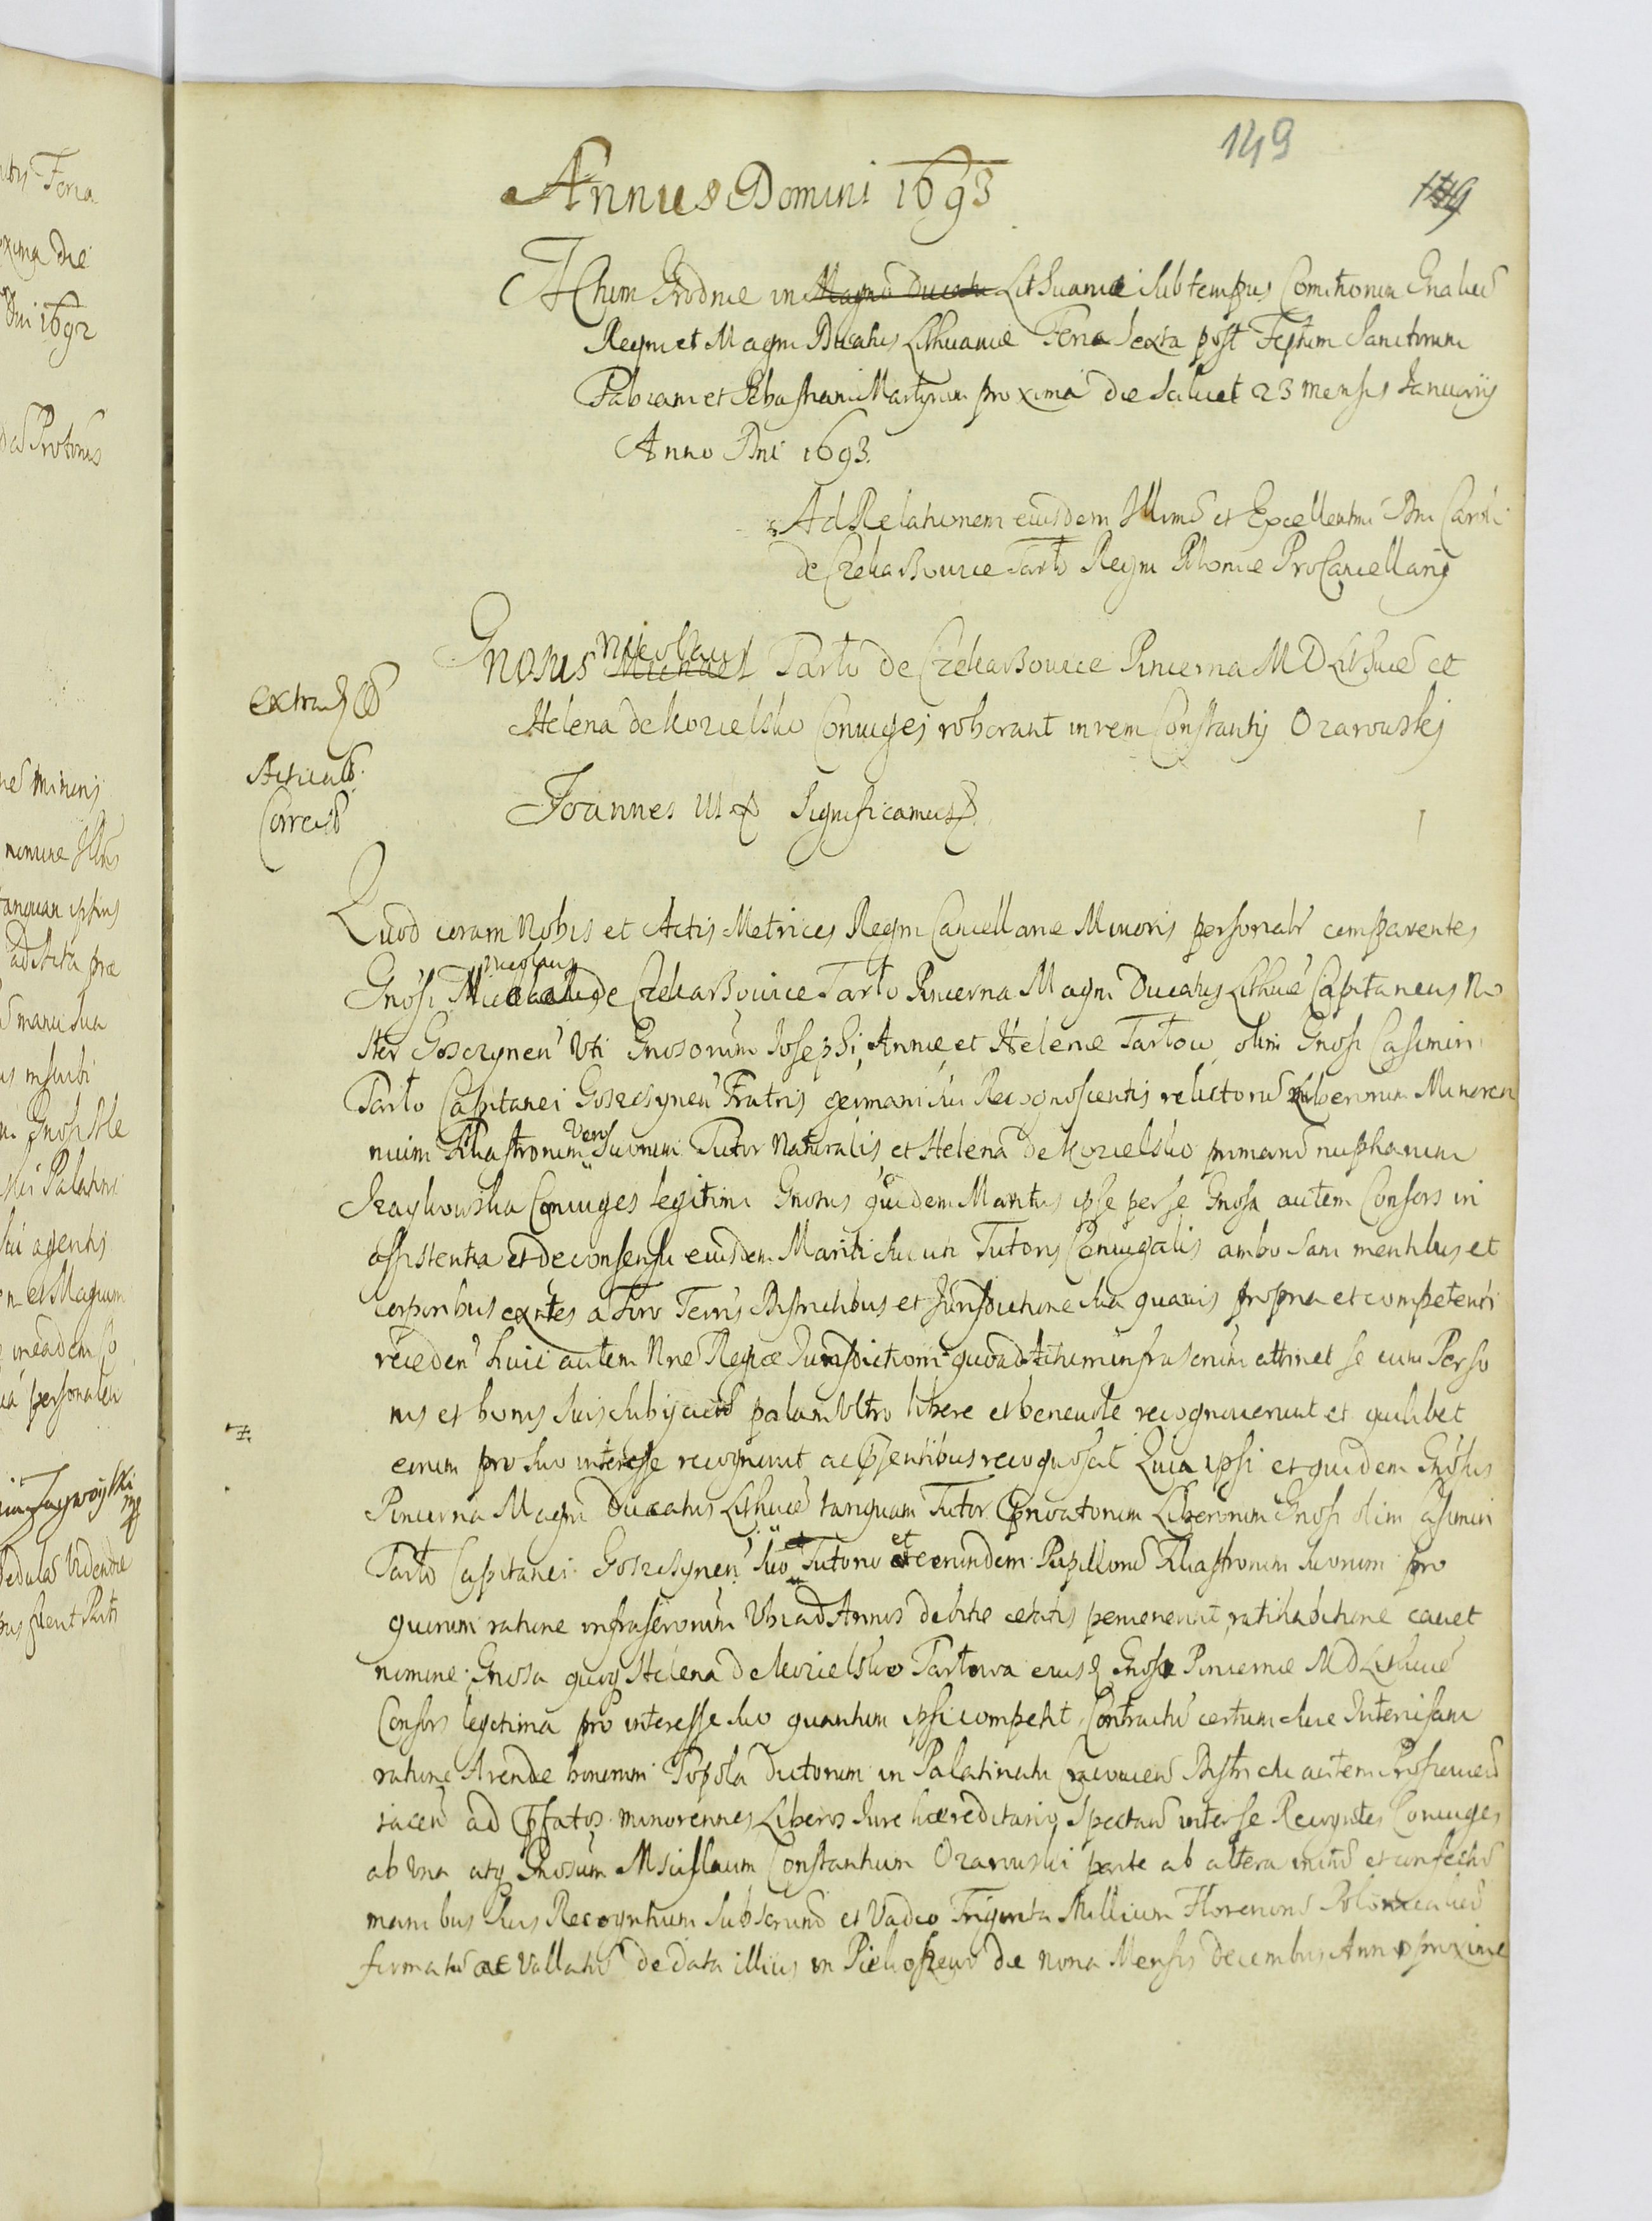 149
Annus Domini 1693
149
Actum Grodnæ in Magno Ducatu Lithuaniæ sub tempus Comitiorum Gnaliũ
Regni et Magni Ducatus Lithuaniæ Feria Sexta post Festum Sanctorum
Fabiani et Sebastiani Martyrum proxima die scilicet 23 mensis Januarij
Anno Dni 1693.
Ad Relationem eiusdem Illmi et Excellentmi Dni Caroli
de Czekarzowice Tarło Regni Poloniæ ProCancellarij
Gnosus Nicolaus Michael Tarło de Czekarzowice Pincerna M D Lithuæ et
Helena de Kozielsko Coniuges roborant in rem Constantij Ozarowskj
Joannes III Significamus
Quod coram Nobis et Actis Metrices Regni Cancellariæ Minoris personalr comparentes
Gnosi Nicolaus de Czekarzowice Tarło Pincerna Magni Ducatus Lithuæ Capitaneus No
ster Goszczynen Uti Gnosorum Josephi, Annæ et Helenæ Tartow olim Gnosi Casimiri
Tarło Capitanei Goszczynen Fratris germani sui Recognoscentis relictorũ Liberorum Minoren
nium Filiastrorum Vero Suorum Tutor Naturalis, et Helena de Kozielsko primarũ nuptiarum
Coniuges legitimi Gnosus quidem Maritus ipse per se Gnosa autem Consors in
assistentia et de consensu eiusdem Mariti sui uti Tutoris Coniugalis ambo sani mentibus et
corporibus exntes a Foro Terris Districtibus et Jurisdictione sua quavis propria et competenti
receden huic autem Nræ Regiæ Jurisdictioni quoad Actum infrascrum attinet se cum Perso
nis et bonis suis subijciend palam Ultro libere et benevole recognoverunt et quilibet
eorum pro suo interesse recognovit ac præsentibus recognoscit Quia ipsi et quidem Gnosus
Pincerna Magni Ducatus Lithuæ tanquam Tutor Liberorum Gnosi olim Casimiri
Tarło Capitanei Goszczynen suo Tutorio et eorundem Pupillorũ Filiastrorum suorum pro
quorum ratione infrascrorum Ubi ad Annos debitæ ætatis pervenerint, ratihabitione cavet
nomine; Gnosa quoq Helena de Kozielsko Tartowa eiusd Gnosi Pincernæ M D Lithuæ
Consors legitima pro interesse suo quantum ipsi competit, Contractũ certum
ratione Arendæ bonorum Topola dictorum in Palatinatu Cracovien Districtu autem Proszovien
iacen ad præfatos minorennes Liberos Jure hæreditario spectan inter se Recogntes Coniuges
ab una atq Gnosum Mscislaum Constantium Ozarowski parte ab altera initũ et confectũ
manibus suis Recogntium subscriũ et Vadio Triginta Millium Florenorũ Polonicaliũ
firmatũ ac Vallatũ de data illius in die nona Mensis Decembris Anno proxime
extrad
Acticat
Correct